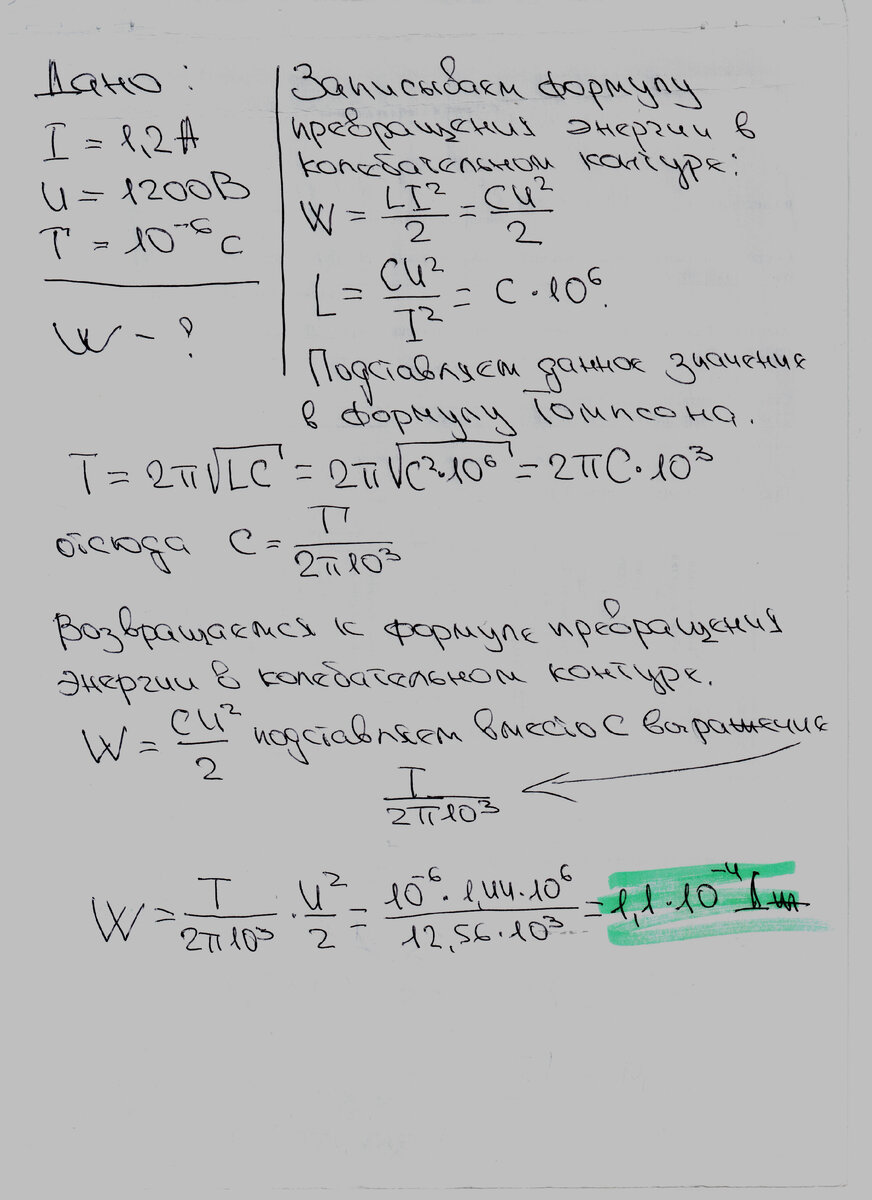 Дано:
I = 1,2 А
U = 1200 В
T = 10⁻⁶ с
W - ?
Записываем формулу
превращения энергии в
колебательном контуре:
W = LI²/2 = CU²/2
L = CU²/I² = C · 10⁶.
Подставляем данное значение
в формулу Томпсона.
T = 2π√LC = 2π√C²·10⁶ = 2πC·10³
отсюда C = T/2π10³
Возвращаемся к формуле превращения
энергии в колебательном контуре.
W = CU²/2 подставляем вместо C выражение
T/2π10³
W = T/2π10³ · U²/2 = 10⁻⁶ · 1,44 · 10⁶/12,56 · 10³ = 1,1 · 10⁻⁴ Дж